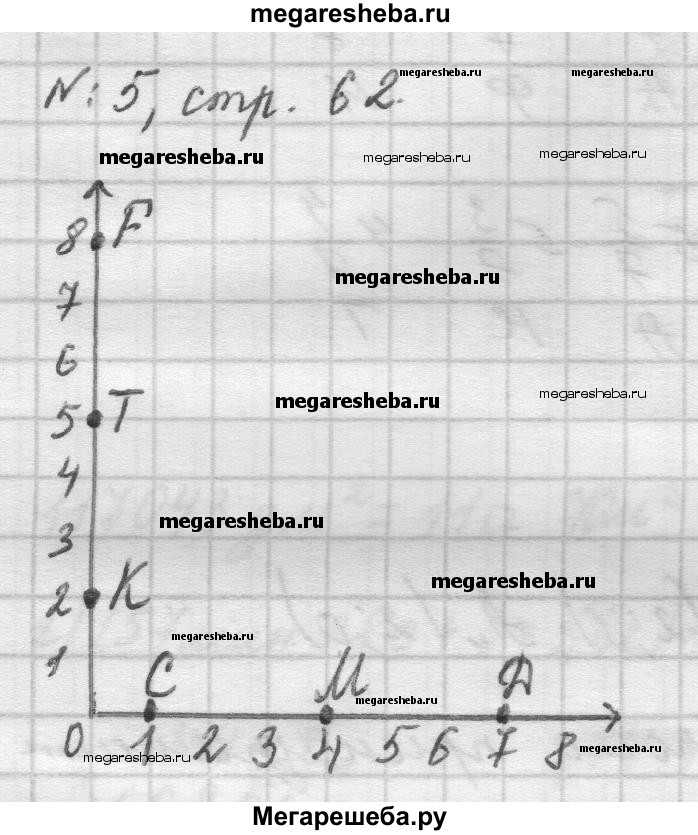 megaresheba.ru
№: 5, стр. 62.
megaresheba.ru
megaresheba.ru
megaresheba.ru
megaresheba.ru
megaresheba.ru
8 F
megaresheba.ru
7
6
megaresheba.ru
megaresheba.ru
5 T
4
megaresheba.ru
3
megaresheba.ru
2 K
megaresheba.ru
1
C M D
megaresheba.ru
0 1 2 3 4 5 6 7 8
megaresheba.ru
megaresheba.ru
Мегарешеба.ру